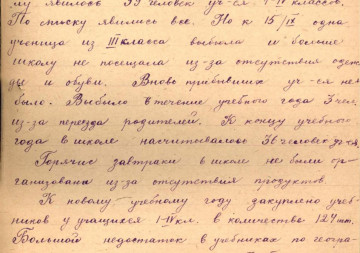 му явилось 39 человек уч-ся I-IV классов.
По списку явились все. Но к 15/IX одна
ученица из III класса выбыла и больше
школу не посещала из-за отсутствия одеж-
ды и обуви. Вновь прибывших уч-ся не
было. Выбыло в течение учебного года 3 чел.
из-за переезда родителей. К концу учебного
года в школе насчитывалось 36 человек уч-ся.
Горячие завтраки в школе не были ор-
ганизованы из-за отсутствия продуктов.
К новому учебному году закуплено учеб-
ников у учащихся I-IV кл. в количестве 124 шт.
Большой недостаток в учебниках по геогра-